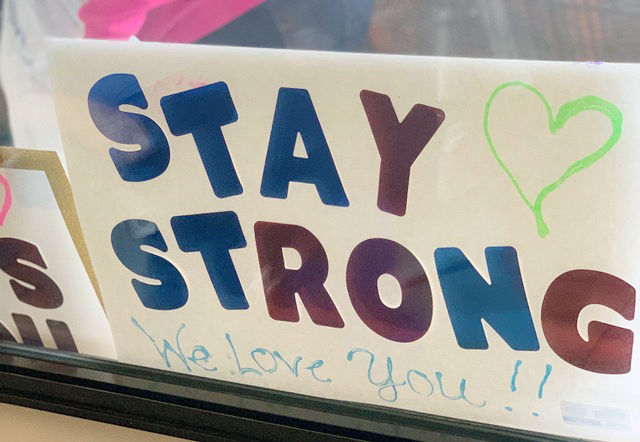 STAY
STRONG
We Love You!!